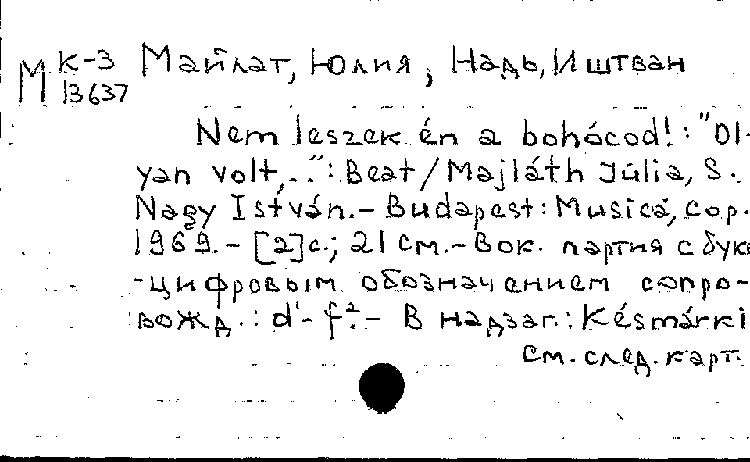 М К-3 Майлат, Юлия, Надь, Иштван
13637
Nem leszek én a bohócod! : "Ol-
yan volt,..": Beat/Majláth Júlia, S.
Nagy István.- Budapest: Musica, cop.
1969.- [2]с.; 21 см.- Вок. партия с букв
-цифровым обозначением сопро-
вожд.: d¹- f².- В надзаг.: Késmárki
См. след. карт.